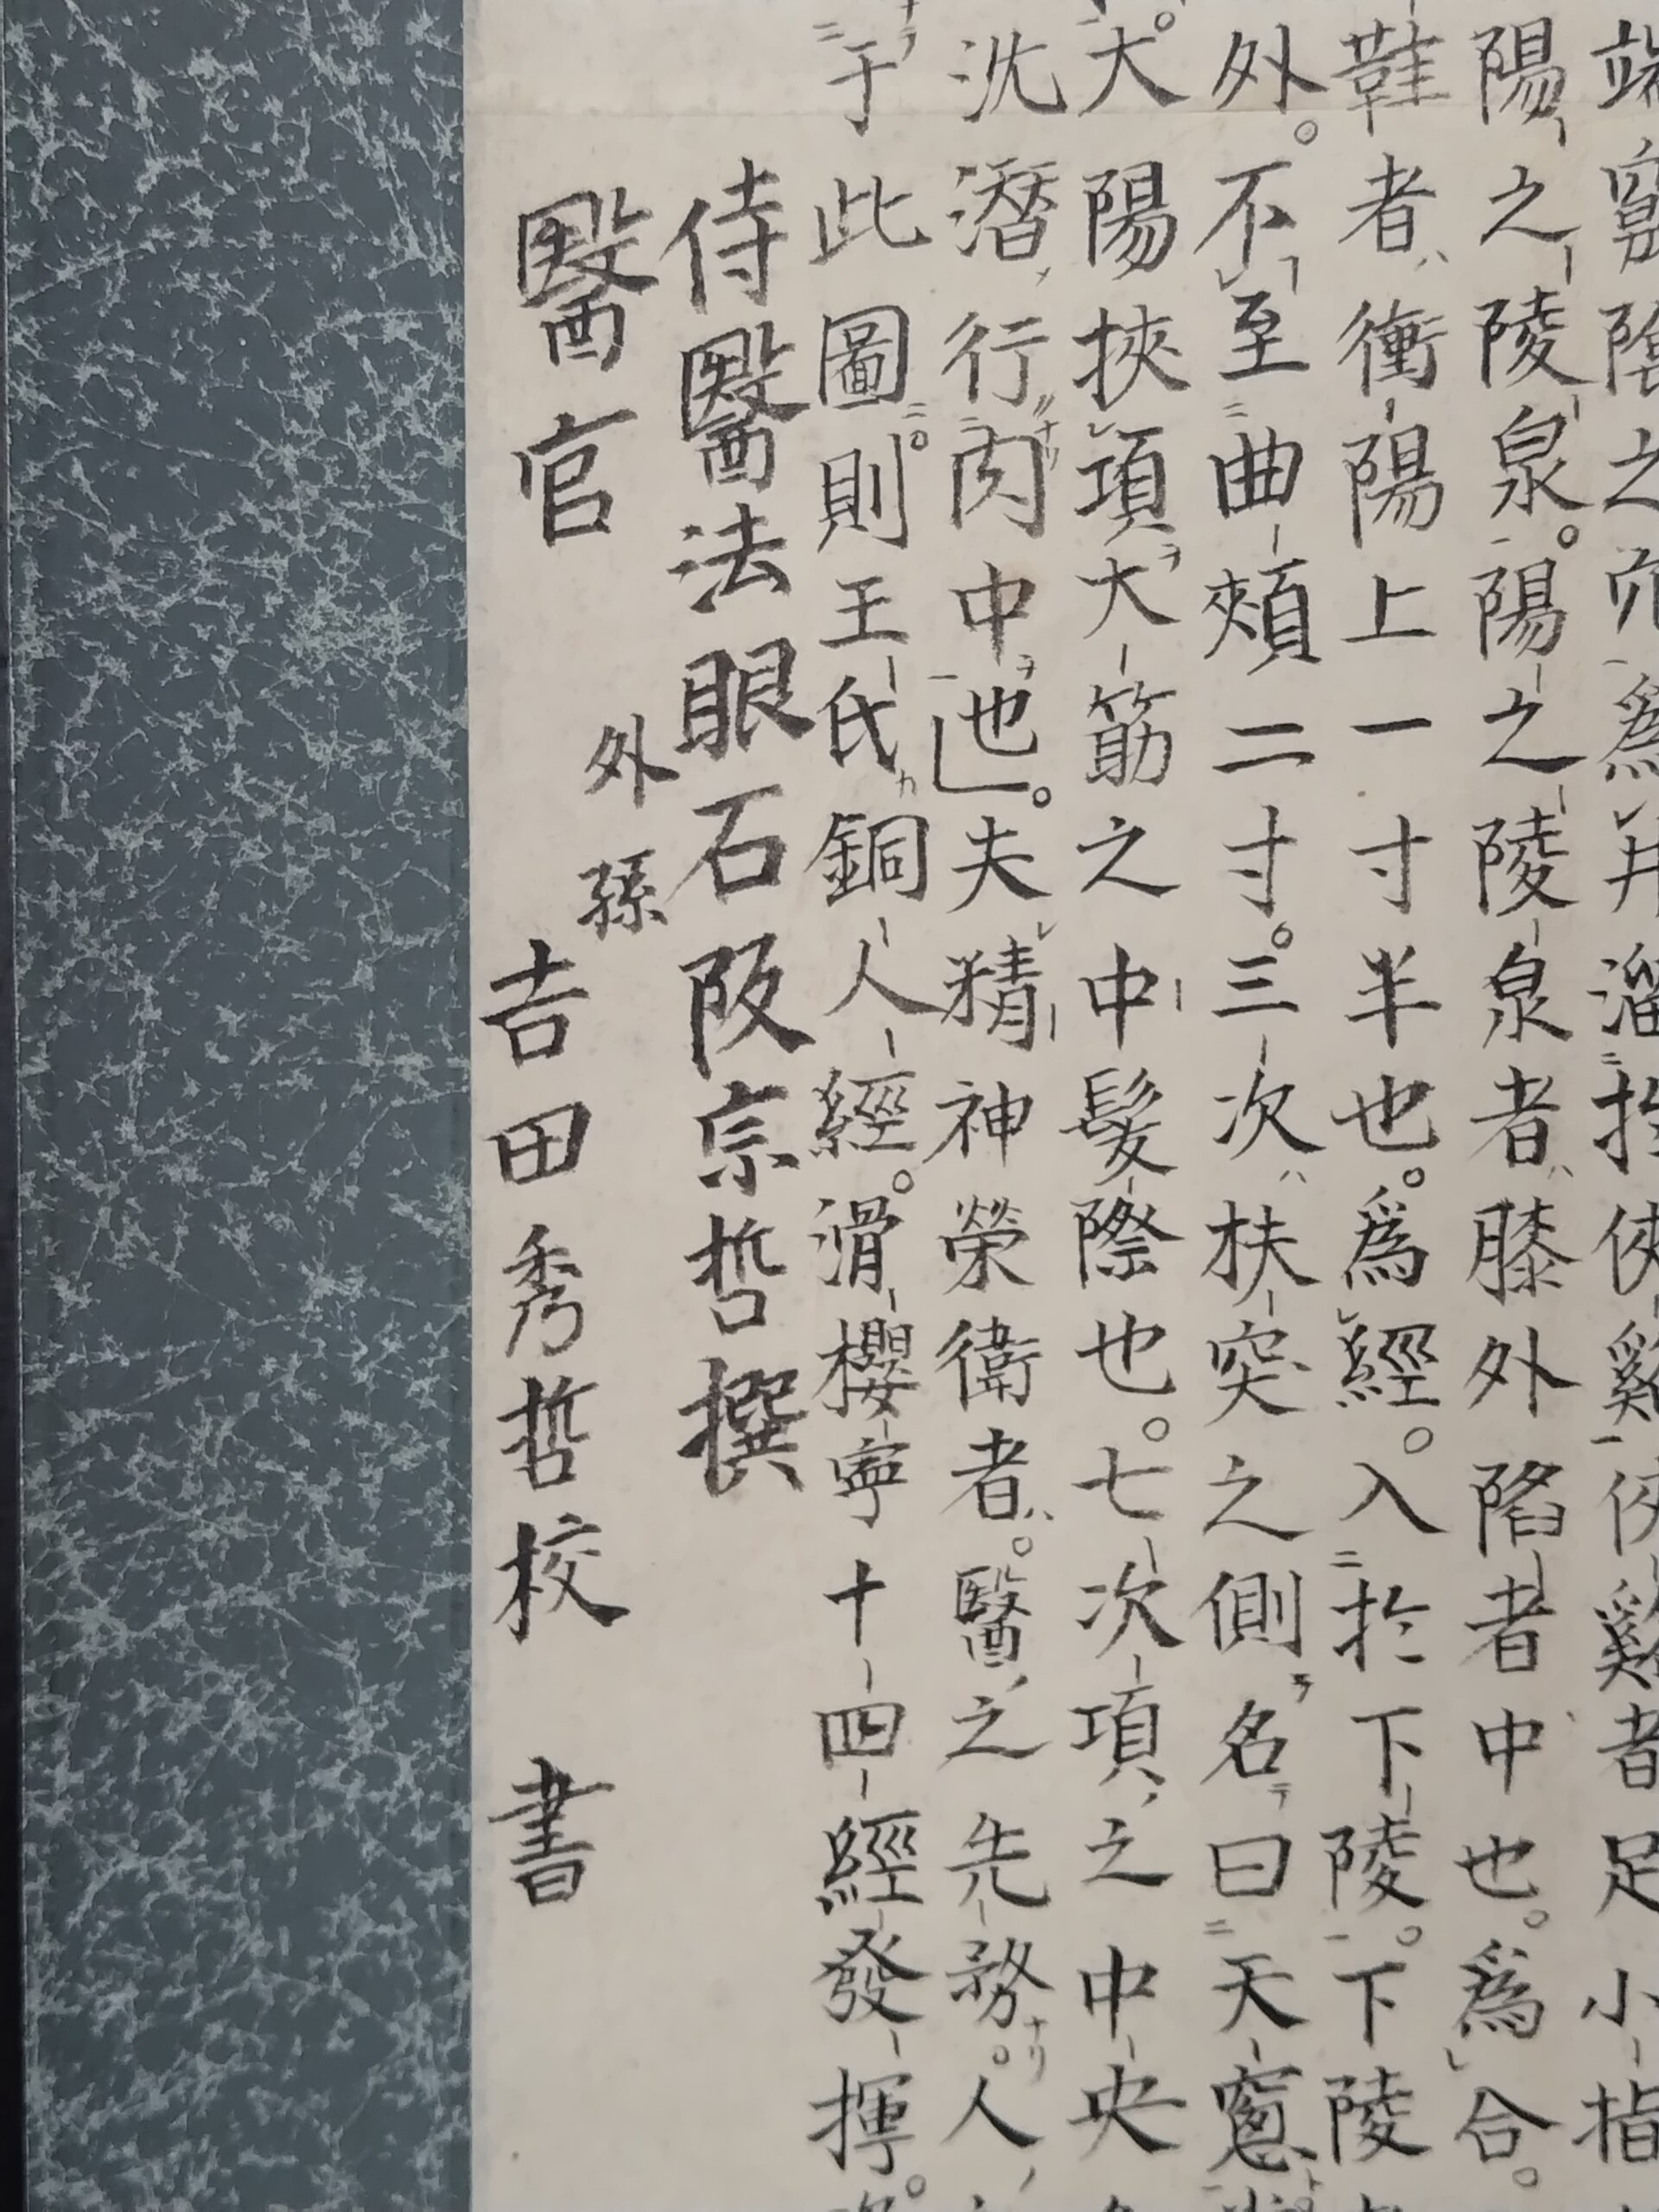 竅陰之穴爲井溜於俠谿俠谿者足小指
陽之陵泉。陽之陵泉者膝外陷者中也。爲合。
鞋者衝陽上一寸半也。爲經。入於下陵。下陵
外。不至曲頰二寸。三次扶突之側名曰天窻
大陽挾項大筋之中髮際也。七次項之中央
沈潛行肉中也。夫精神榮衛者。醫之先務。人
于此圖。則王氏銅人經。滑櫻寧十四經發揮。
侍醫法眼石阪宗哲撰
醫官 外孫 吉田秀哲校 書